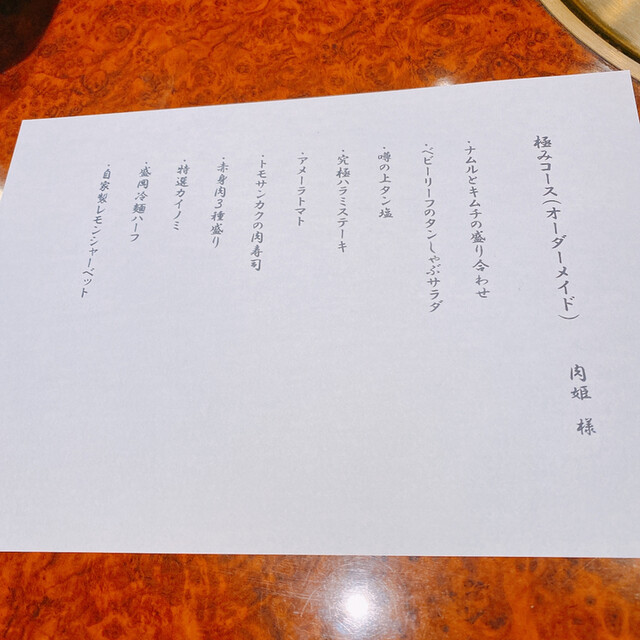 極みコース(オーダーメイド) 肉姫 様
・ナムルとキムチの盛り合わせ
・ベビーリーフのタンしゃぶサラダ
・噂の上タン塩
・究極ハラミステーキ
・アメーラトマト
・トモサンカクの肉寿司
・赤身肉3種盛り
・特選カイノミ
・盛岡冷麺ハーフ
・自家製レモンシャーベット